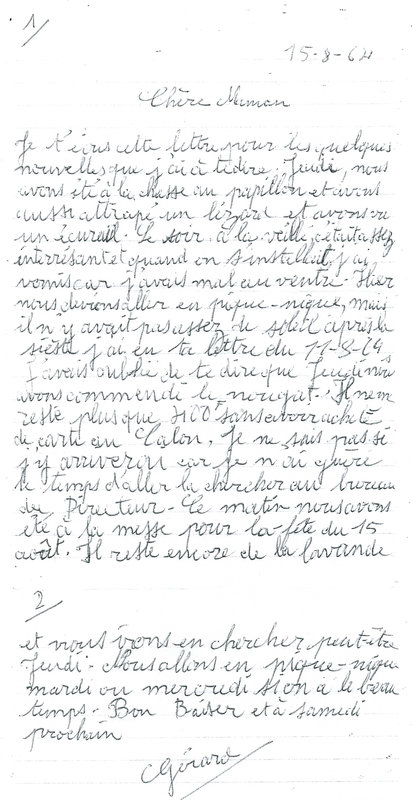 1/
15-8-64
Chère Maman
Je t'écris cette lettre pour les quelques
nouvelles que j'ai à te dire. Jeudi, nous
avons été à la chasse au papillon et avons
aussi attrapé un lézard et avons vu
un écureuil. Le soir à la veillé, c'était assez
interrésant et quand on s'installait j'ai
vomis car j'avais mal au ventre. Hier
nous devions aller en pique-nique, mais
il n'y avait pas assez de soleil après la
sièste j'ai eu ta lettre du 11-8-64,
j'avais oublié de te dire que Jeudi nous
avons commendé le nougat. Il n'em
reste plus que sans avoir acheté
de carte au Je ne sais pas si
j'y arriverai car je n'ai guère
le temps d'aller la chercher au bureau
du Directeur. Ce matin nous avons
été à la messe pour la fête du 15
août. Il reste encore de la lavande
2/
et nous irons en chercher peut-être
Jeudi. Nous allons en pique-nique
mardi ou mercredi si on à le beau
temps. Bon Baiser et à samedi
prochain
Gérard